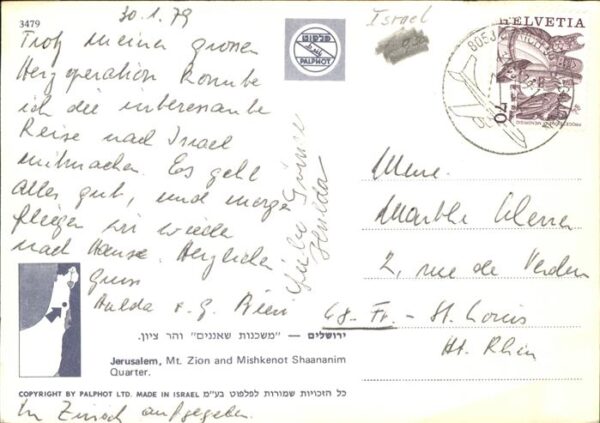 3479
30.1.79
Trotz meiner grossen
Herzoperation konnte
ich die interessante
Reise nach Israel
mitmachen. Es geht
alles gut, und morgen
fliegen wir wieder
nach Hause. Herzlichen
Gruss
Hulda
Liebe Grüsse
פלפוט
PALPHOT
Israel
HELVETIA
70
Mme.
Marthe
2, rue de Verdun
68-Fr.- St. Louis
Ht. Rhin
ירושלים — "משכנות שאננים" והר ציון.
Jerusalem, Mt. Zion and Mishkenot Shaananim
Quarter.
COPYRIGHT BY PALPHOT LTD. MADE IN ISRAEL כל הזכויות שמורות לפלפוט בע"מ
In Zürich aufgegeben.